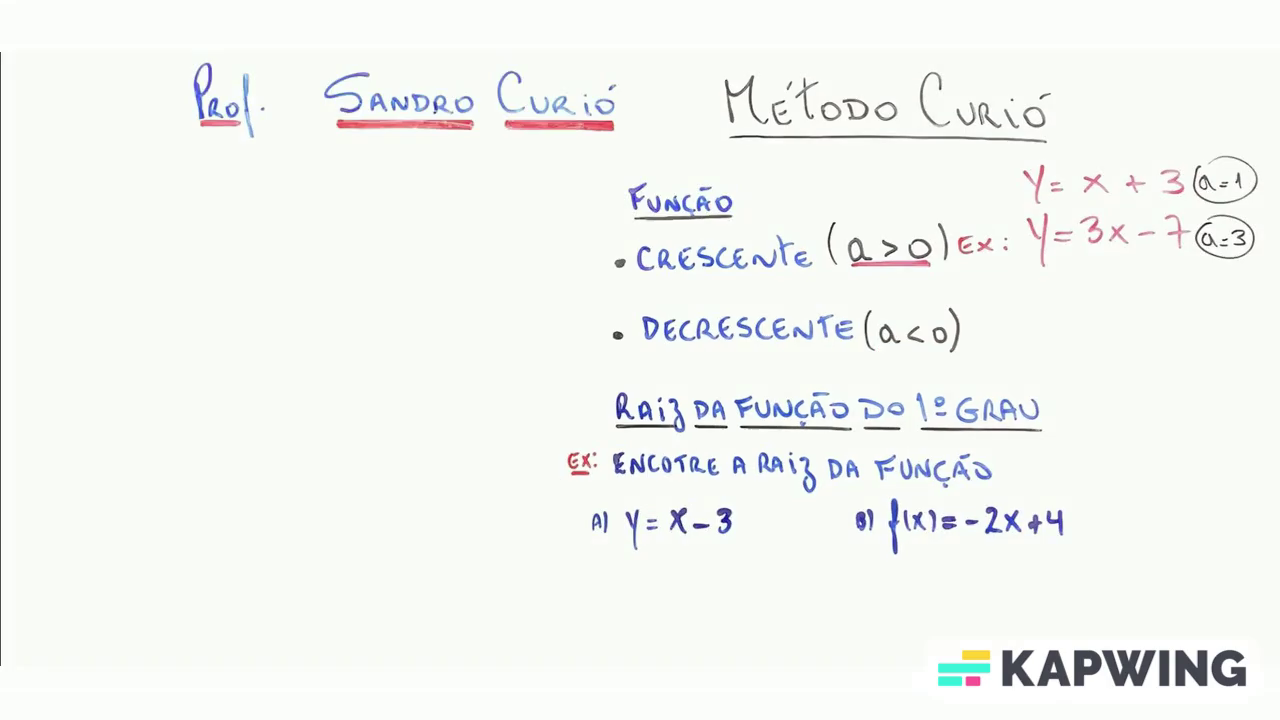 Prof. SANDRO CURIÓ MÉTODO CURIÓ
FUNÇÃO
y = x + 3 a=1
• CRESCENTE (a > 0) EX: y = 3x - 7 a=3
• DECRESCENTE (a < 0)
RAIZ DA FUNÇÃO DO 1º GRAU
EX: ENCOTRE A RAIZ DA FUNÇÃO
A) y = x - 3 B) f(x) = -2x + 4
KAPWING